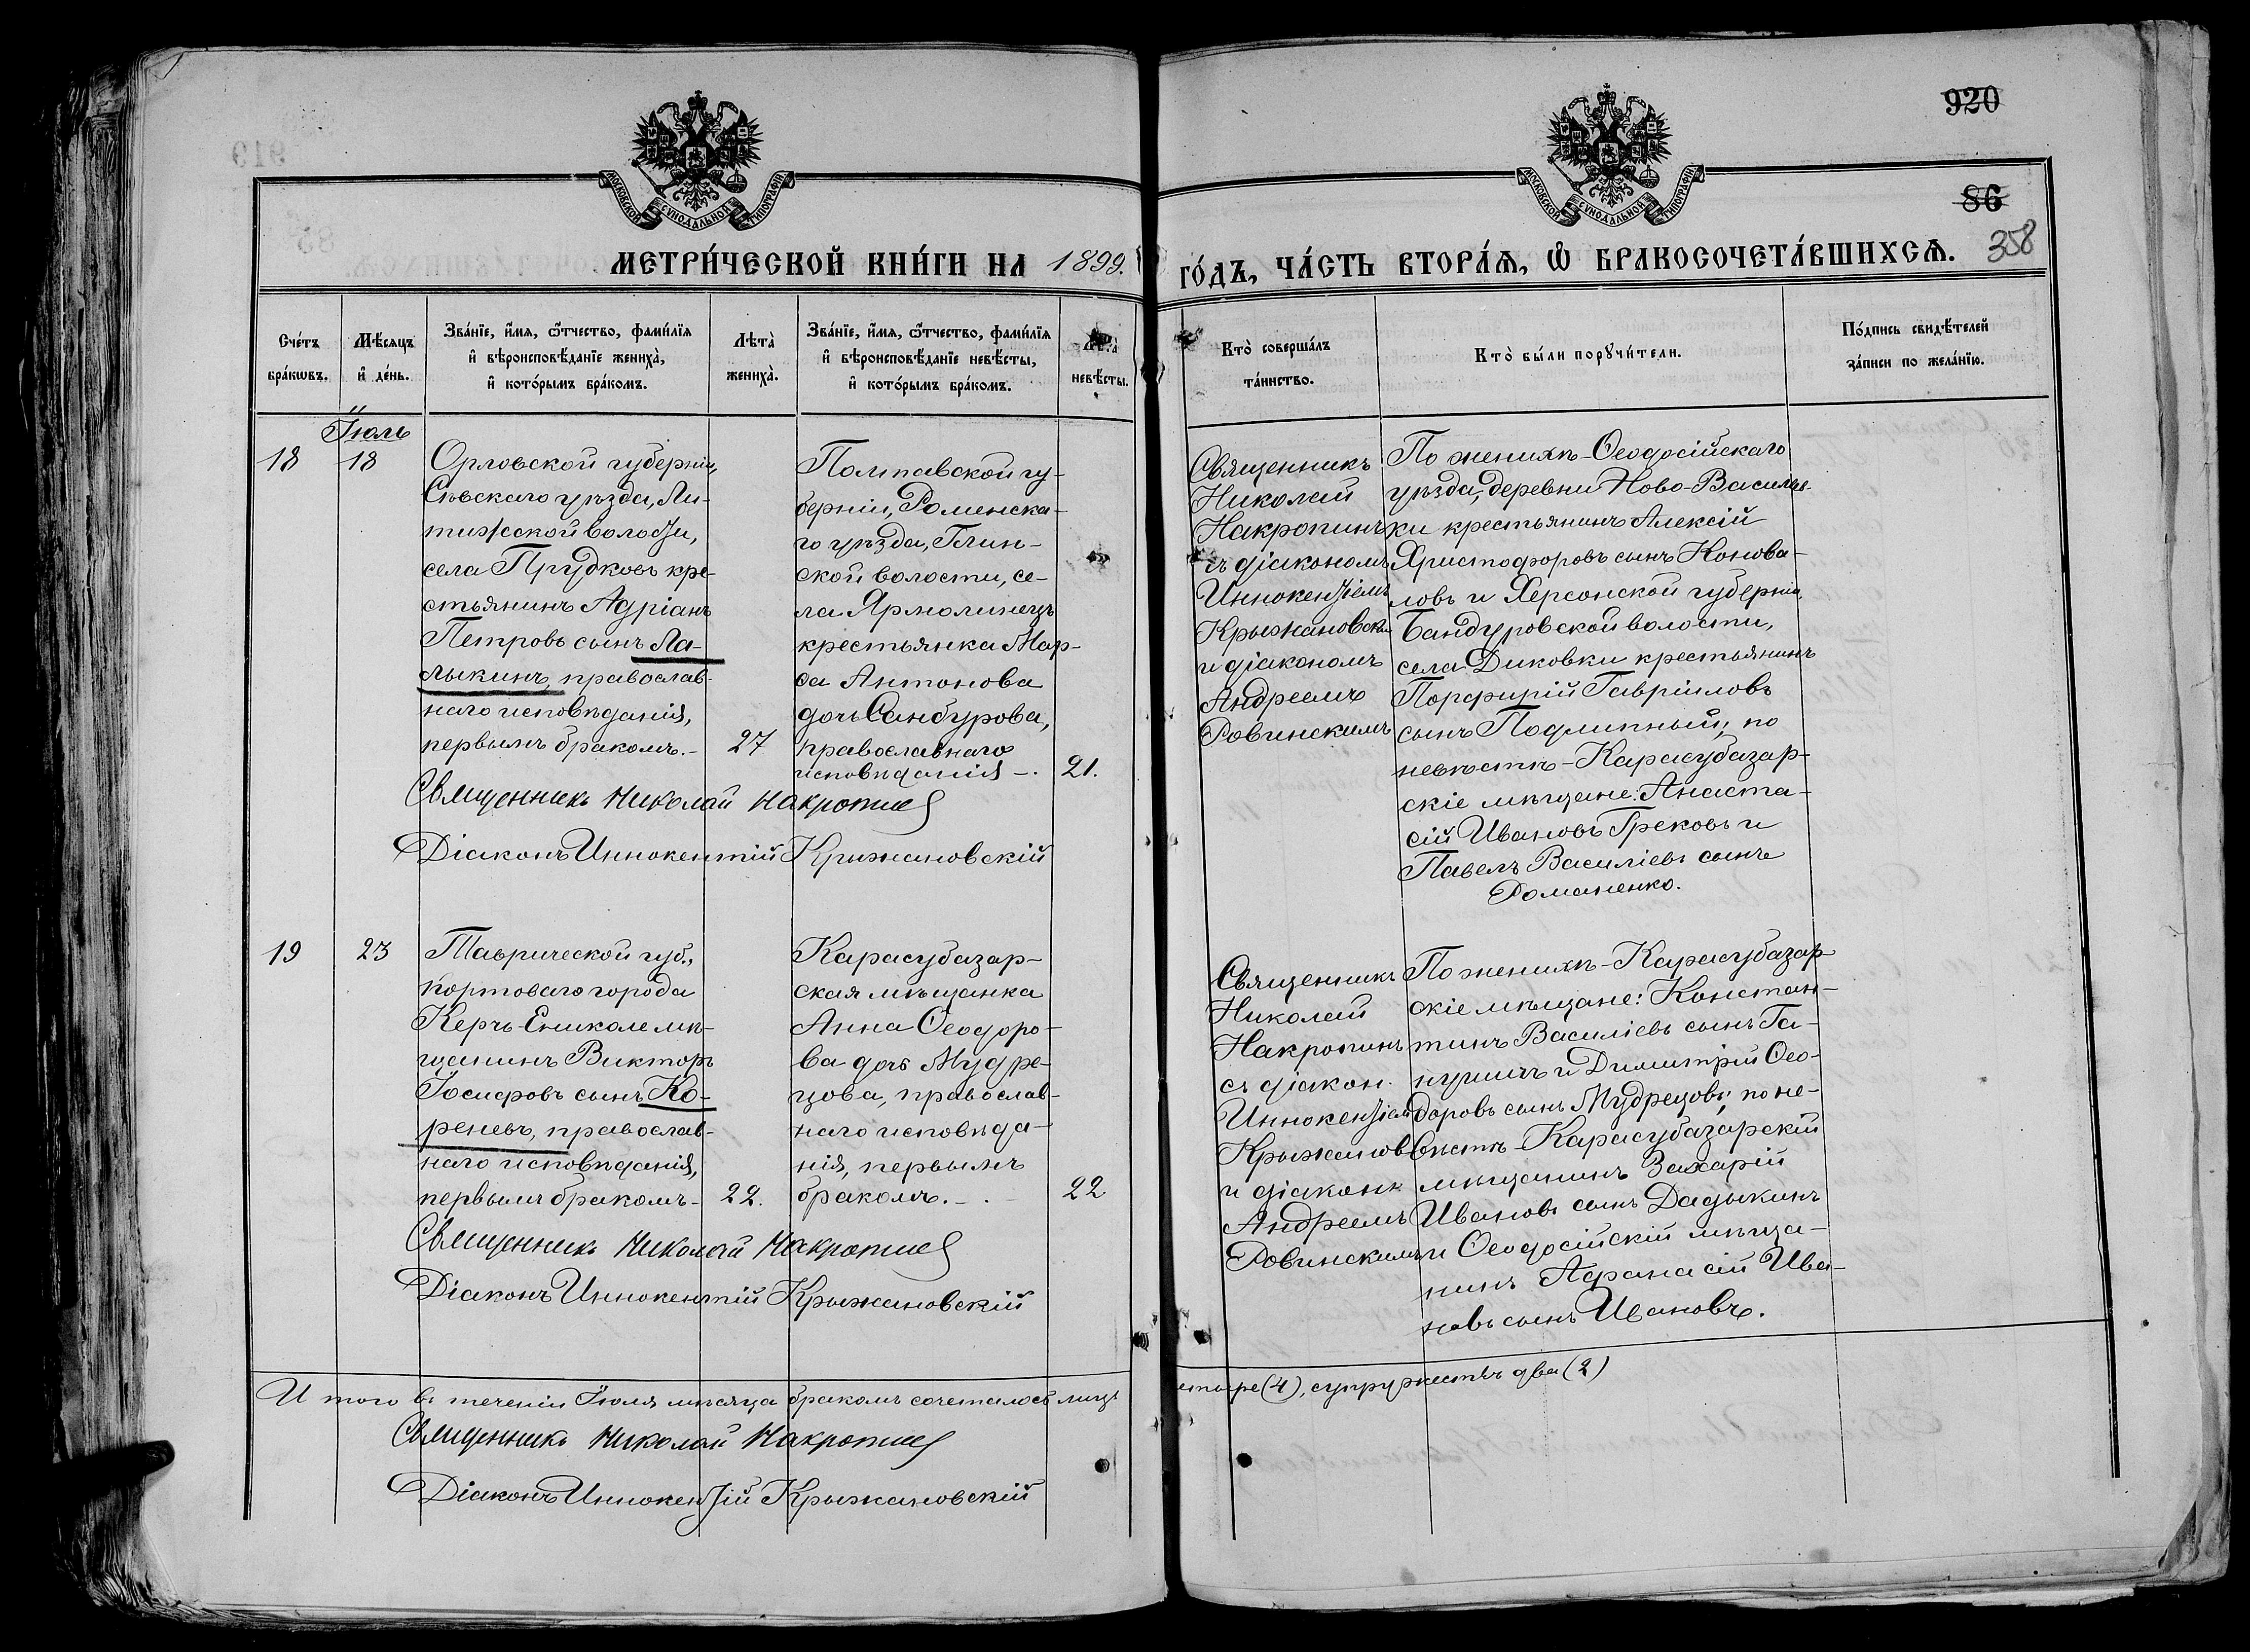 920
86
358
МОСКОВСКОЙ СУНОДАЛЬНОЙ ТИПОГРАФІИ
МОСКОВСКОЙ СУНОДАЛЬНОЙ ТИПОГРАФІИ
МЕТРИ́ЧЕСКОЙ КНИ́ГИ НА 1899.
ГО́ДЪ, ЧА́СТЬ ВТОРА́Я, Ѡ҆ БРАКОСОЧЕТА́ВШИХСЯ.
Сче́тъ
бра́кѡвъ.
Мѣ́сяцъ
и҆ де́нь.
Зва́нїе, и҆́мя, ѻ҆́тчество, фами́лїя
и҆ вѣроисповѣ́данїе жениха̀,
и҆ кото́рымъ бра́комъ.
Лѣта̀
жениха̀.
Зва́нїе, и҆́мя, ѻ҆́тчество, фами́лїя
и҆ вѣроисповѣ́данїе невѣ́сты,
и҆ кото́рымъ бра́комъ.
Лѣта̀
невѣ́сты.
Кто̀ соверша́лъ
та́инство.
Кто̀ бы́ли порꙋчи́тели.
По́дпись свидѣ́телей
за́писи по жела́нїю.
Іюль
18
18
Орловской губерніи,
Сѣвскаго уѣзда, Ли-
тижской волости,
села Прудковъ кре-
стьянинъ Адріанъ
Петровъ сынъ Ла-
лыкинъ, православ-
наго исповѣданія,
первымъ бракомъ. -
27
Полтавской гу-
берніи, Роменска-
го уѣзда, Глин-
ской волости, се-
ла Ярмолинецъ
крестьянка Мар-
ѳа Антонова
дочь Санбурова,
православнаго
исповѣданія -.
21.
Священникъ
Николай
Накропинъ
съ діакономъ
Иннокентіемъ
Крыжановск
и діакономъ
Андреемъ
Ровинскимъ
По женихѣ - Ѳеодосійскаго
уѣзда, деревни Ново-Василье-
ки крестьянинъ Алексій
Христофоровъ сынъ Конова-
ловъ и Херсонской губерніи,
Бандуровской волости,
села Диковки крестьянинъ
Порфирій Гавріиловъ
сынъ Подлипный; по
невѣстѣ - Карасубазар-
скіе мѣщане: Анаста-
сій Ивановъ Грековъ и
Павелъ Василіевъ сынъ
Романенко.
Священникъ Николай Накропин
Діаконъ Иннокентій Крыжановскій
19
23
Таврической губ.,
портоваго города
Керчь-Еникале мѣ-
щанинъ Викторъ
Іосифовъ сынъ Ко-
реневъ, православ-
наго исповѣданія,
первымъ бракомъ -
22.
Карасубазар-
ская мѣщанка
Анна Ѳеодоро-
ва дочь Мудре-
цова, православ-
наго исповѣда-
нія, первымъ
бракомъ. - . -
22
Священникъ
Николай
Накропинъ
съ діакон.
Иннокентіем
Крыжанов
и діакон
Андреемъ
Ровинскимъ
По женихѣ - Карасубазар-
скіе мѣщане: Констан-
тинъ Василіевъ сынъ Га-
и Димитрій Ѳео-
доровъ сынъ Мудрецовъ; по не-
вѣстѣ - Карасубазарскій
мѣщанинъ Захарій
Ивановъ сынъ Дадыкинъ
и Ѳеодосійскій мѣща-
нинъ Афанасій Ива-
новъ сынъ Ивановъ.
Священникъ Николай Накропин
Діаконъ Иннокентій Крыжановскій
Итого въ теченіи Іюля мѣсяца бракомъ сочеталось лицъ
етыре (4), супружествъ два (2)
Священникъ Николай Накропин
Діаконъ Иннокентій Крыжановскій